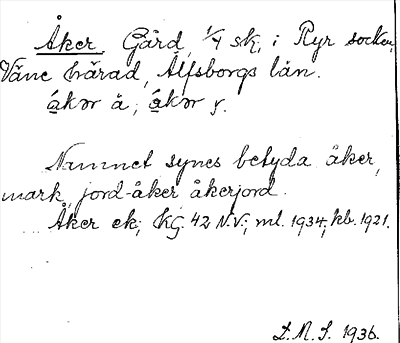 Åker Gård, 1/4 sk, i Ryr socken,
Väne härad, Älfsborgs län.
åkər å; åkər y.
Namnet synes betyda åker,
mark, jord-åker åkerjord.
Åker ek; KG. 42 N.V.; ml. 1934; kb. 1921.
L.N.S. 1936.